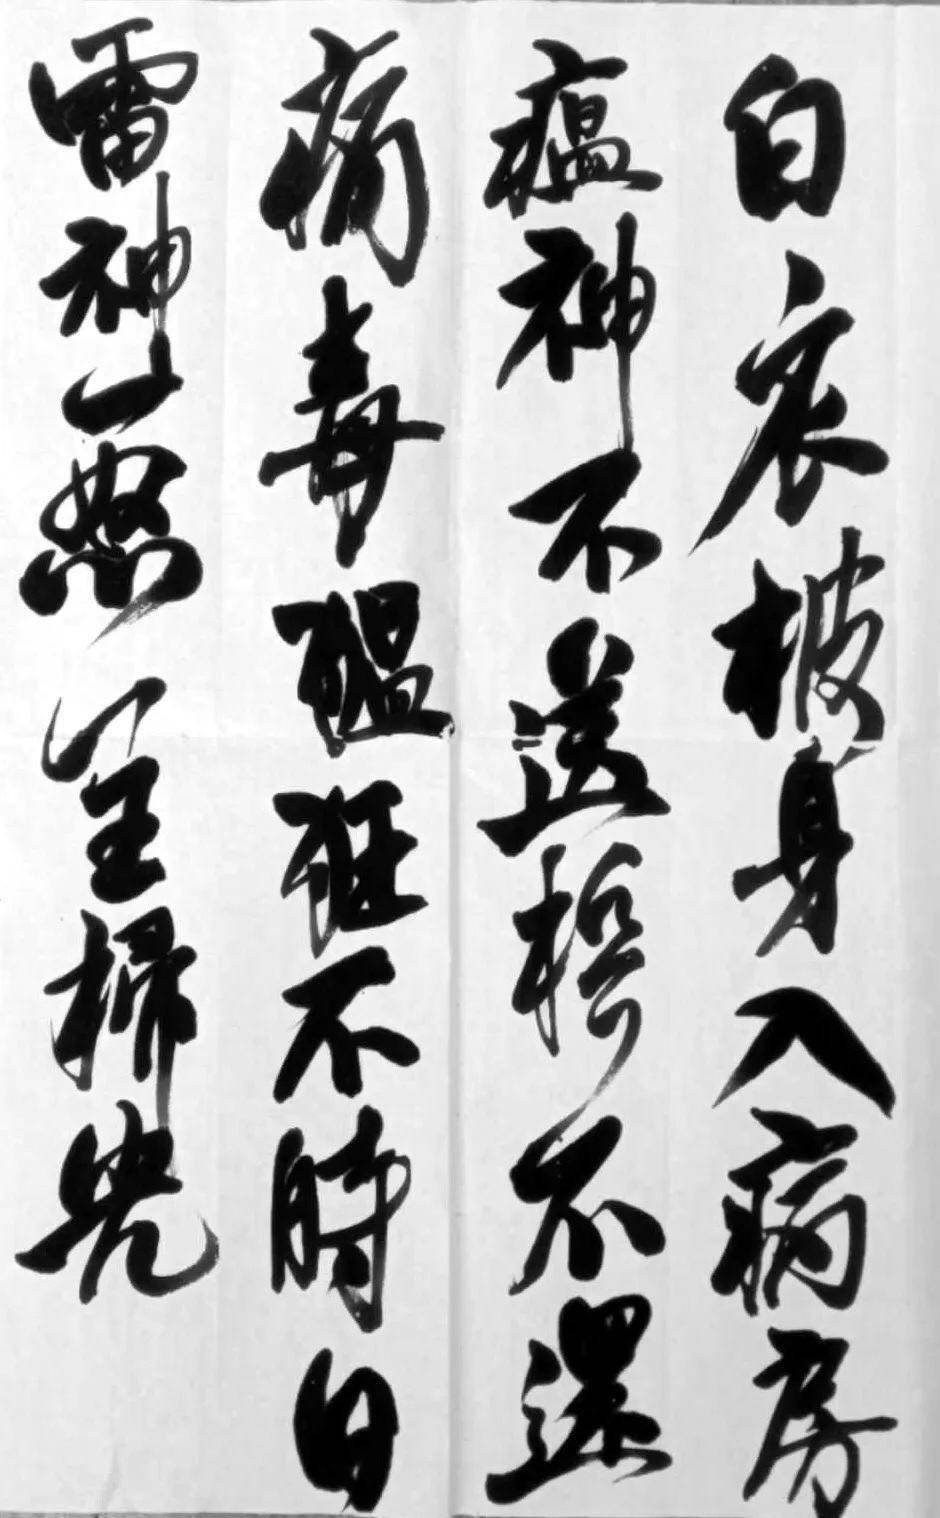 白衣披身入病房
瘟神不送誓不還
病毒猖狂不時日
雷神一怒全掃光